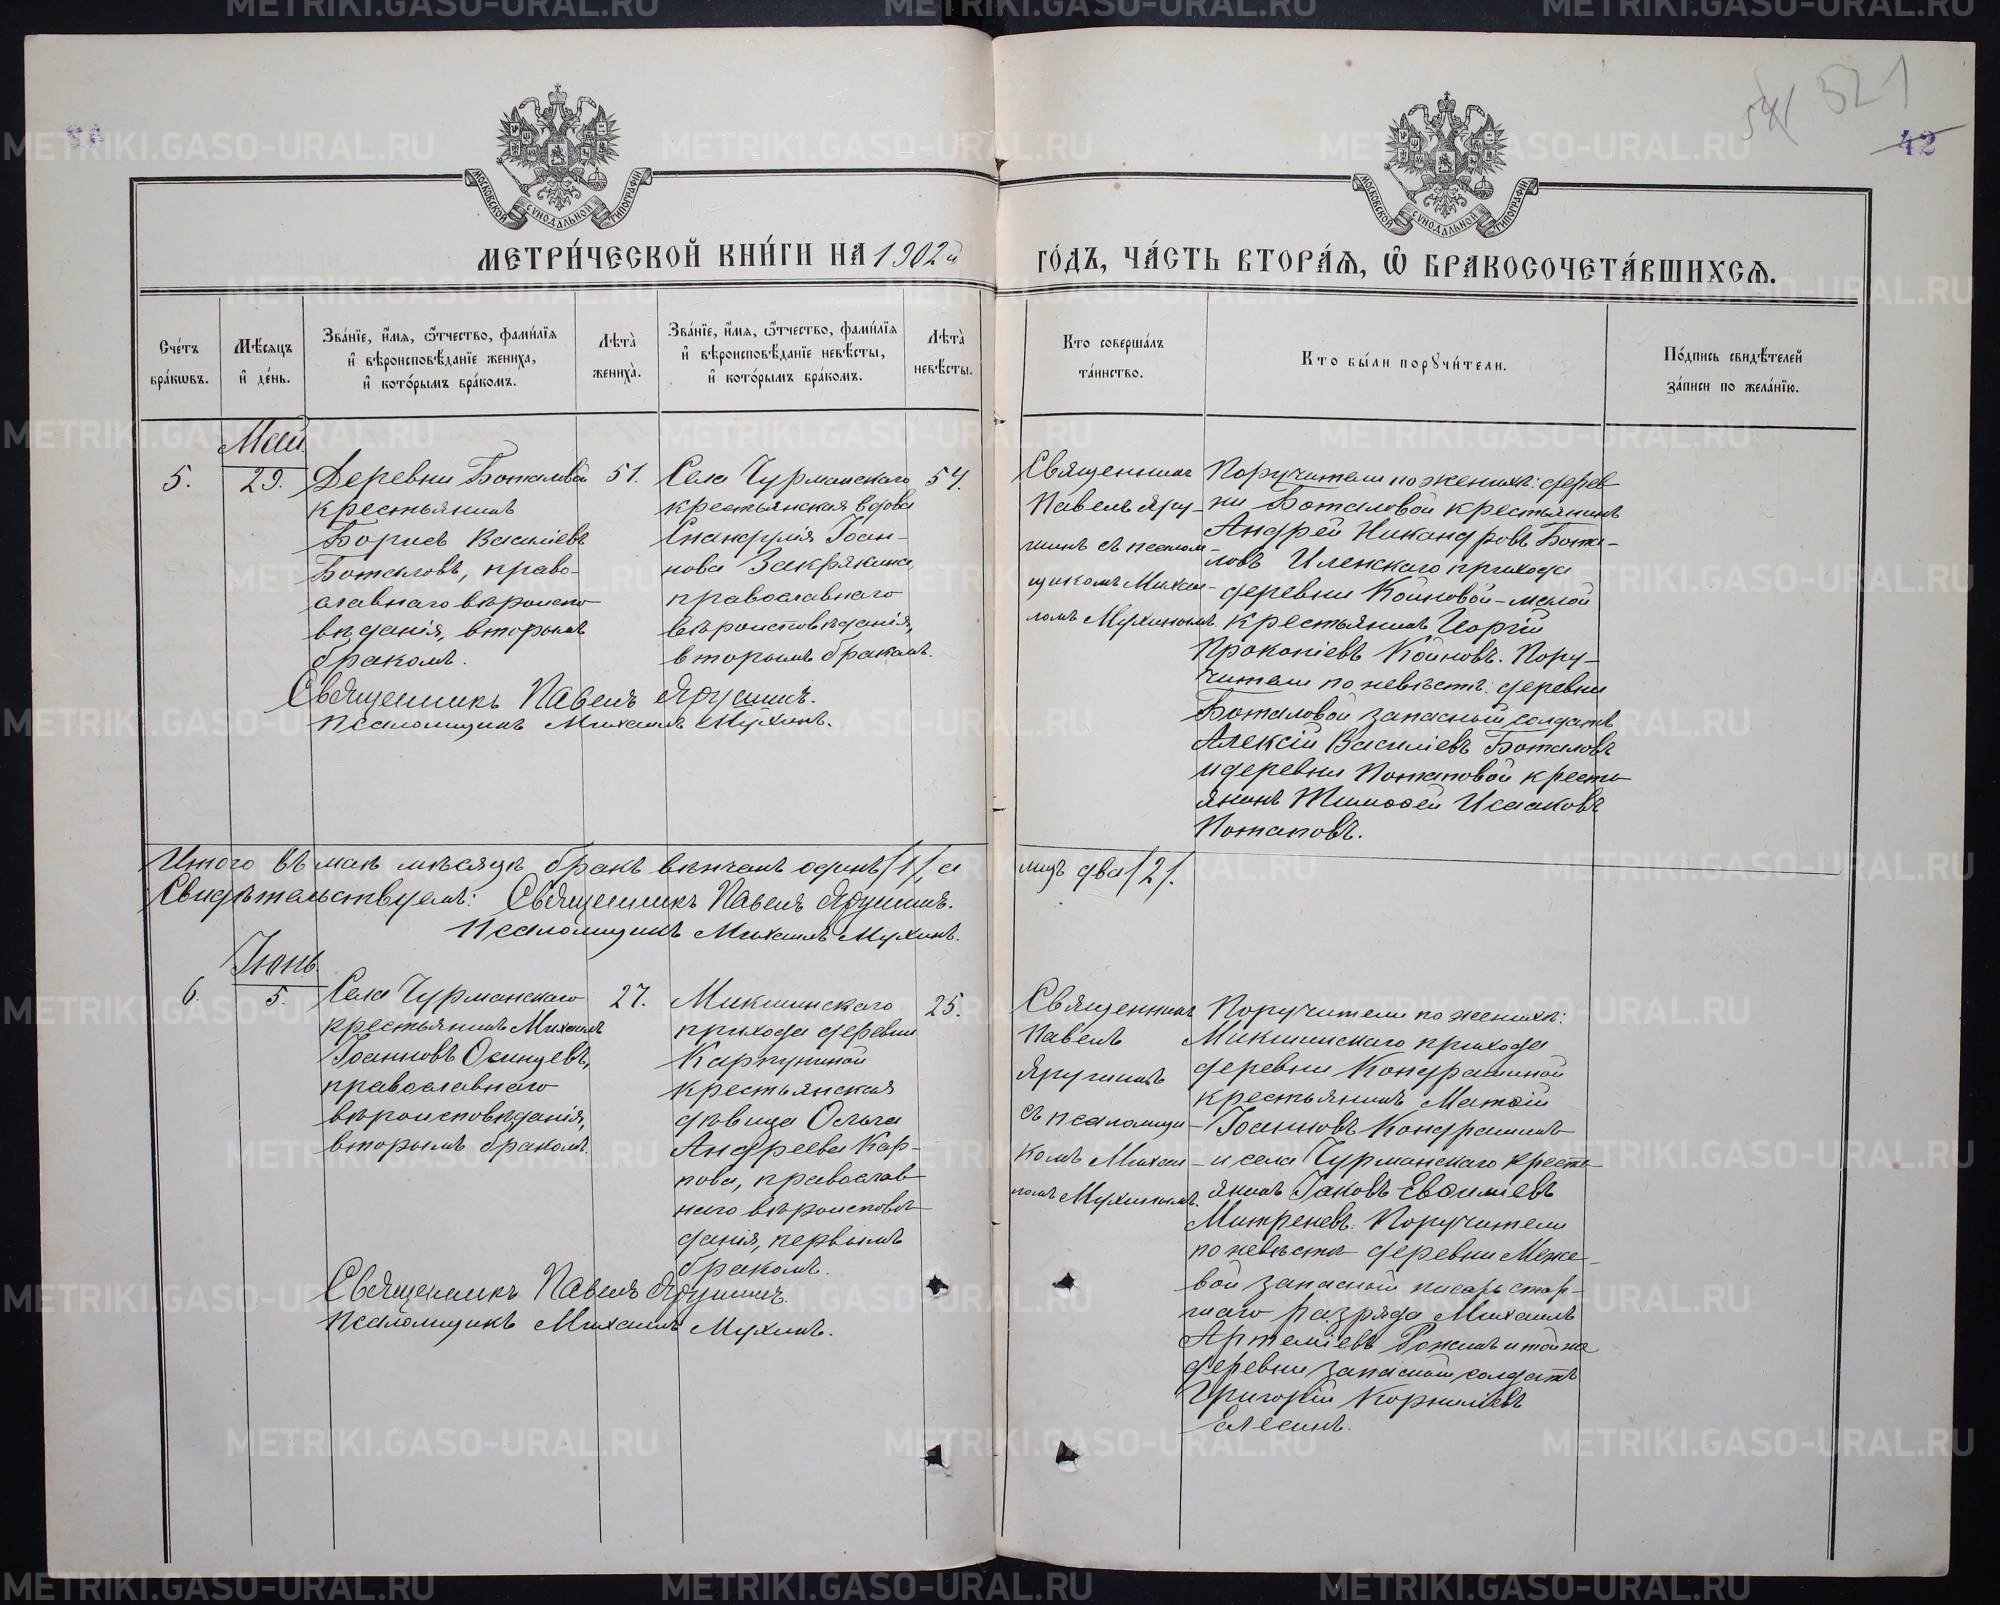 321
541
42
МОСКОВСКОЙ СѴНОДАЛЬНОЙ ТИПОГРАФІИ.
МОСКОВСКОЙ СѴНОДАЛЬНОЙ ТИПОГРАФІИ.
МЕТРИ́ЧЕСКОЙ КНИ́ГИ НА 1902й ГО́ДЪ, ЧА́СТЬ ВТОРА́Ѧ, Ѽ БРАКОСОЧЕТА́ВШИХСѦ.
Сче́тъ бра́кѡвъ.
Мѣ́сяцъ и҆ де́нь.
Зва́нїе, и҆́мѧ, ѻ҆́тчество, фами́лїѧ и҆ вѣроисповѣ́данїе жениха̀, и҆ кото́рымъ бра́комъ.
Лѣта̀ жениха̀.
Зва́нїе, и҆́мѧ, ѻ҆́тчество, фами́лїѧ и҆ вѣроисповѣ́данїе невѣ́сты, и҆ кото́рымъ бра́комъ.
Лѣта̀ невѣ́сты.
Кто соверша́лъ та́инство.
Кто бы́ли порꙋчи́тели.
По́дпись свидѣ́телей за́писи по жела́нїю.
Май
5.
29.
Деревни Боталовой
крестьянинъ
Борисъ Василіевъ
Боталовъ, право-
славнаго вѣроиспо-
вѣданія, вторымъ
бракомъ.
51.
Села Чурманскаго
крестьянская вдова
Іоан-
нова Закрякина
православнаго
вѣроисповѣданія,
вторымъ бракомъ.
54.
Священникъ Павелъ Ярушинъ.
Псаломщикъ Михаилъ Мухинъ.
Священникъ
Павелъ Яру-
шинъ съ псалом-
щикомъ Михаи-
ломъ Мухинымъ.
Поручители по женихѣ: дерев-
ни Боталовой крестьянинъ
Андрей Никандровъ Бота-
ловъ Иленскаго прихода
деревни Койновой-малой
крестьянинъ Георгій
Прокопіевъ Койновъ. Пору-
чители по невѣстѣ: деревни
Боталовой запасный солдатъ
Алексій Василіевъ Боталовъ
и деревни Потаповой кресть-
янинъ Тимофей Исааковъ
Потаповъ.
Итого въ маѣ мѣсяцѣ бракъ вѣнчанъ одинъ /1/, а лицъ два /2/.
Свидѣтельствуемъ: Священникъ Павелъ Ярушинъ.
Псаломщикъ Михаилъ Мухинъ.
Іюнь
6.
5.
Села Чурманскаго
крестьянинъ Михаилъ
Іоанновъ Осинцевъ,
православнаго
вѣроисповѣданія,
вторымъ бракомъ.
27.
Микшинскаго
прихода деревни
Карпуниной
крестьянская
дѣвица Ольга
Андреева Кар-
пова, православ-
наго вѣроисповѣ-
данія, первымъ
бракомъ.
25.
Священникъ Павелъ Ярушинъ.
Псаломщикъ Михаилъ Мухинъ.
Священникъ
Павелъ
Ярушинъ
съ псаломщи-
комъ Михаи-
ломъ Мухинымъ.
Поручители по женихѣ:
Микшинскаго прихода
деревни Кондрашиной
крестьянинъ Матѳій
Іоанновъ Кондрашинъ
и села Чурманскаго кресть-
янинъ Іаковъ Евѳиміевъ
Митреневъ. Поручители
по невѣстѣ деревни Меже-
вой запасный писарь стар-
шаго разряда Михаилъ
Артеміевъ Рожинъ и той же
деревни запасный солдатъ
Григорій Корниліевъ
Елесинъ.
METRIKI.GASO-URAL.RU